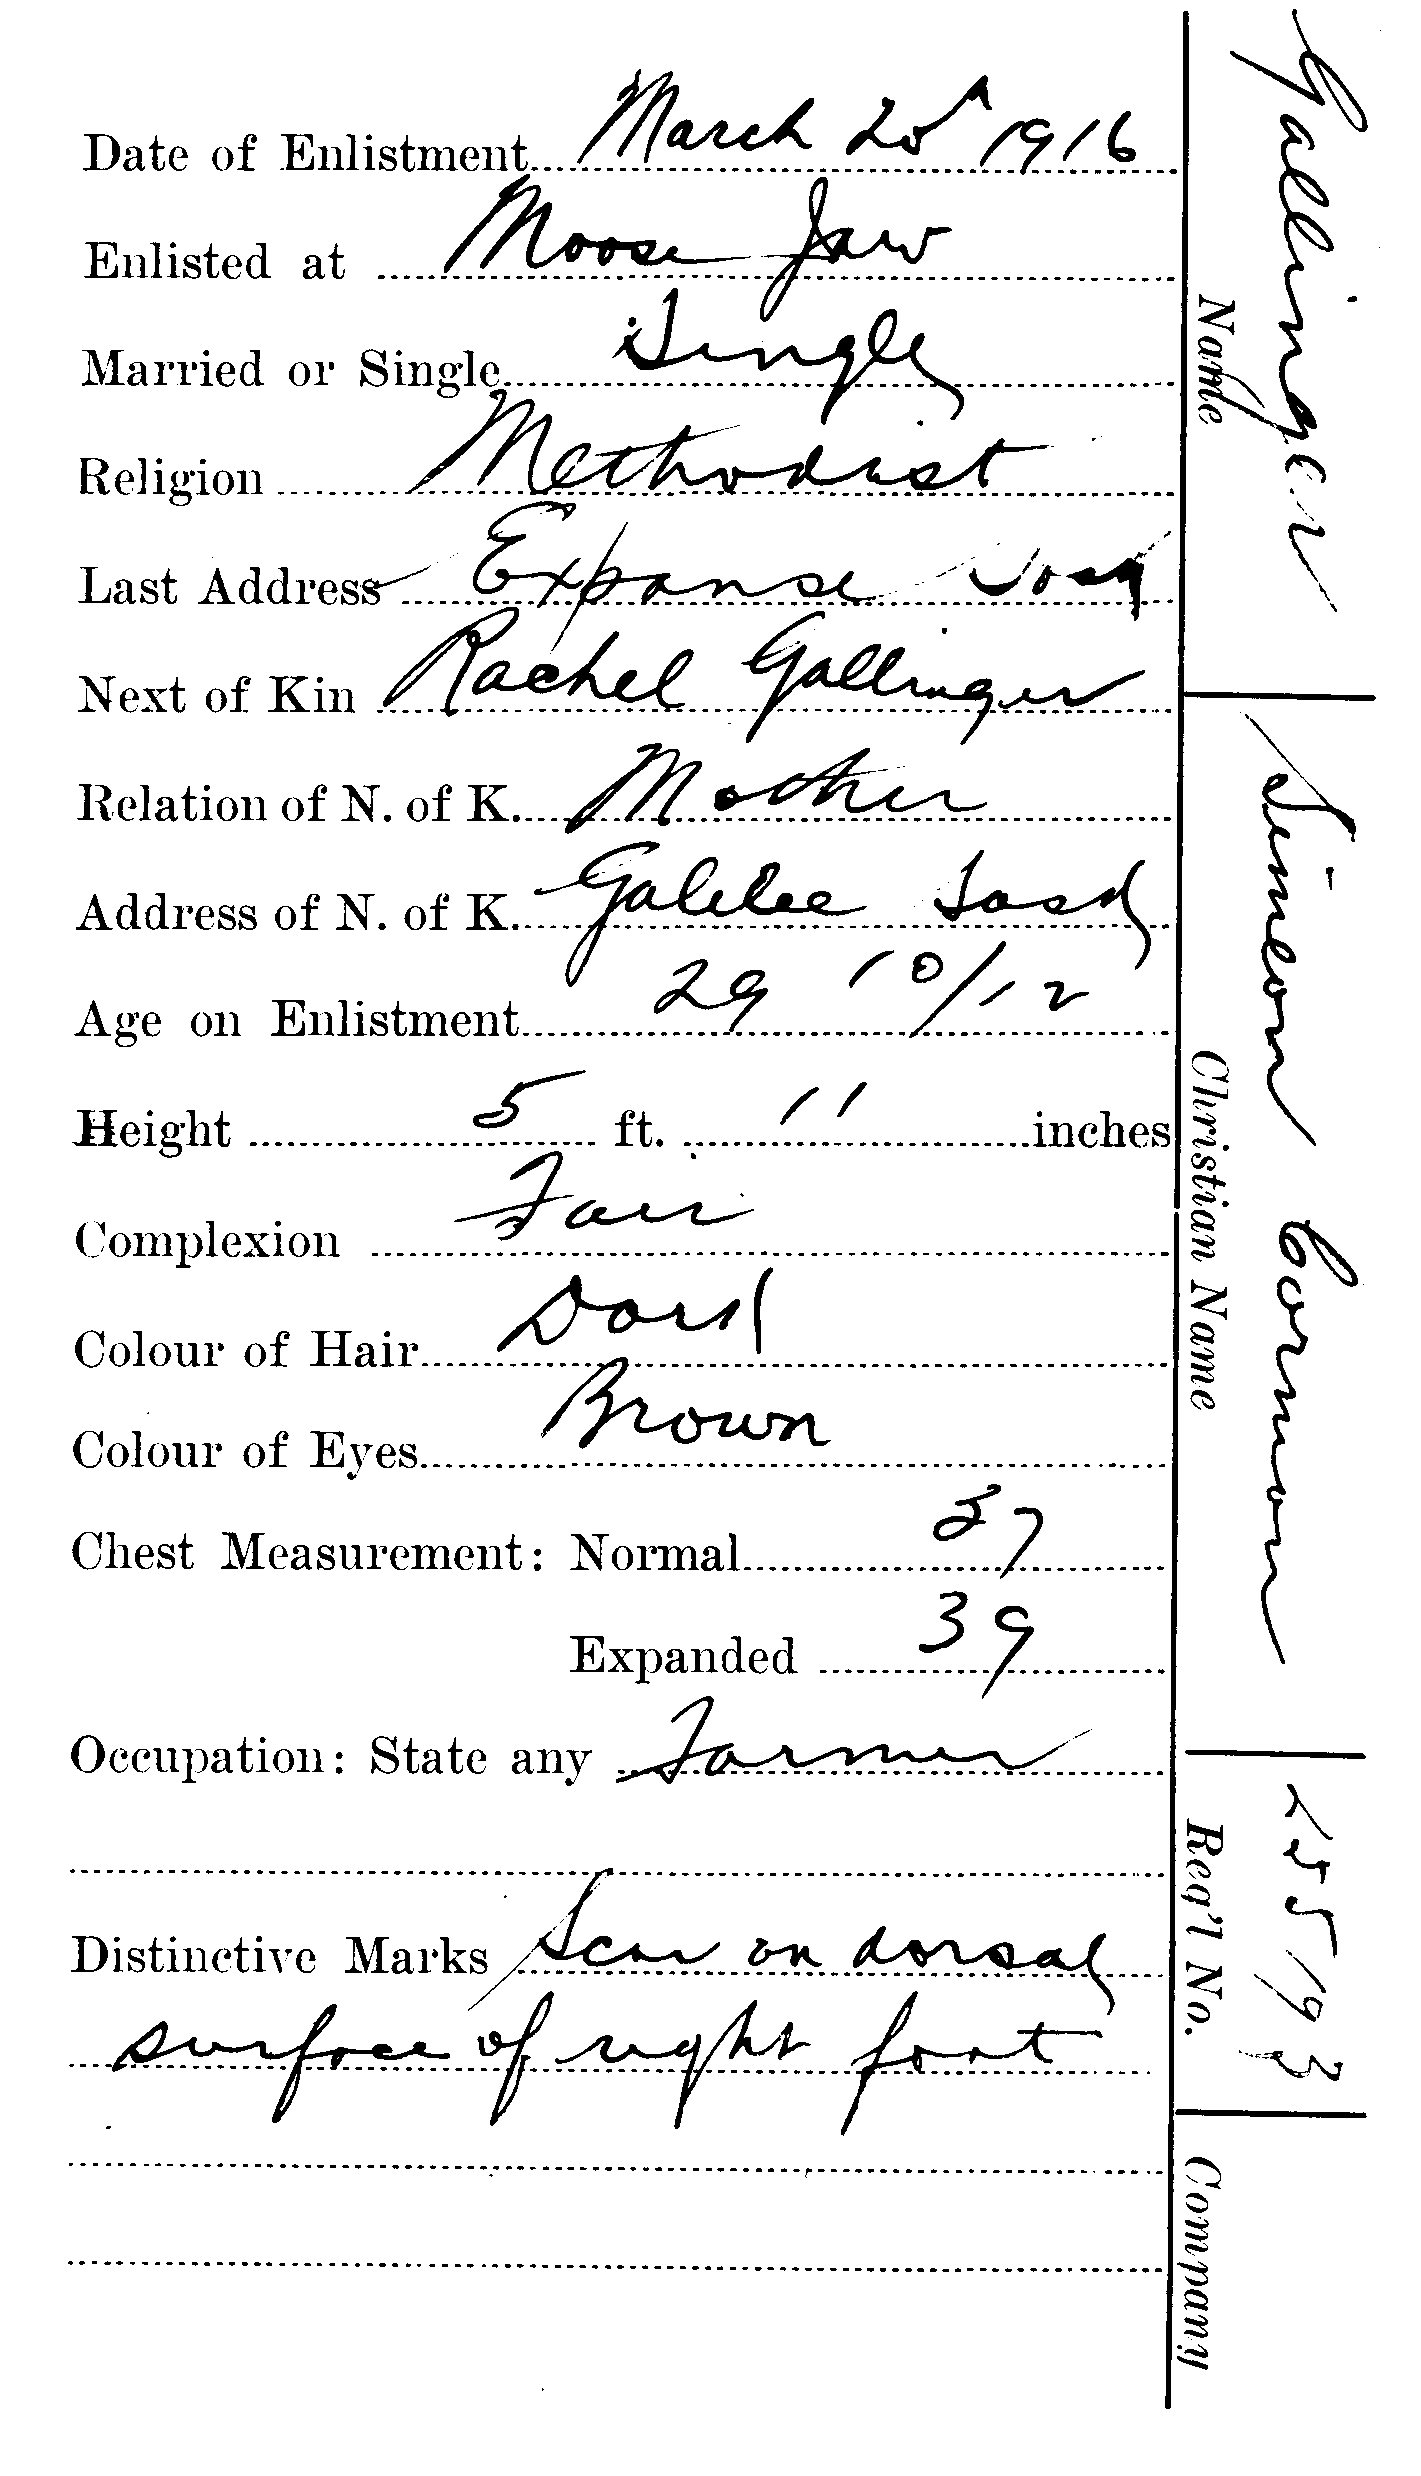 Date of Enlistment March 20th 1916
Enlisted at Moose Jaw
Married or Single Single
Religion Methodist
Last Address Expanse Sask
Next of Kin Rachel Gallinger
Relation of N. of K. Mother
Address of N. of K. Galilee Sask
Age on Enlistment 29 10/12
Height 5 ft. 11 inches
Complexion Fair
Colour of Hair Dark
Colour of Eyes Brown
Chest Measurement: Normal 37
Expanded 39
Occupation: State any Farmer
Distinctive Marks Scar on dorsal
surface of right foot
Gallinger
Name
Simeon Cormon
Christian Name
255193
Reg'l No.
Company